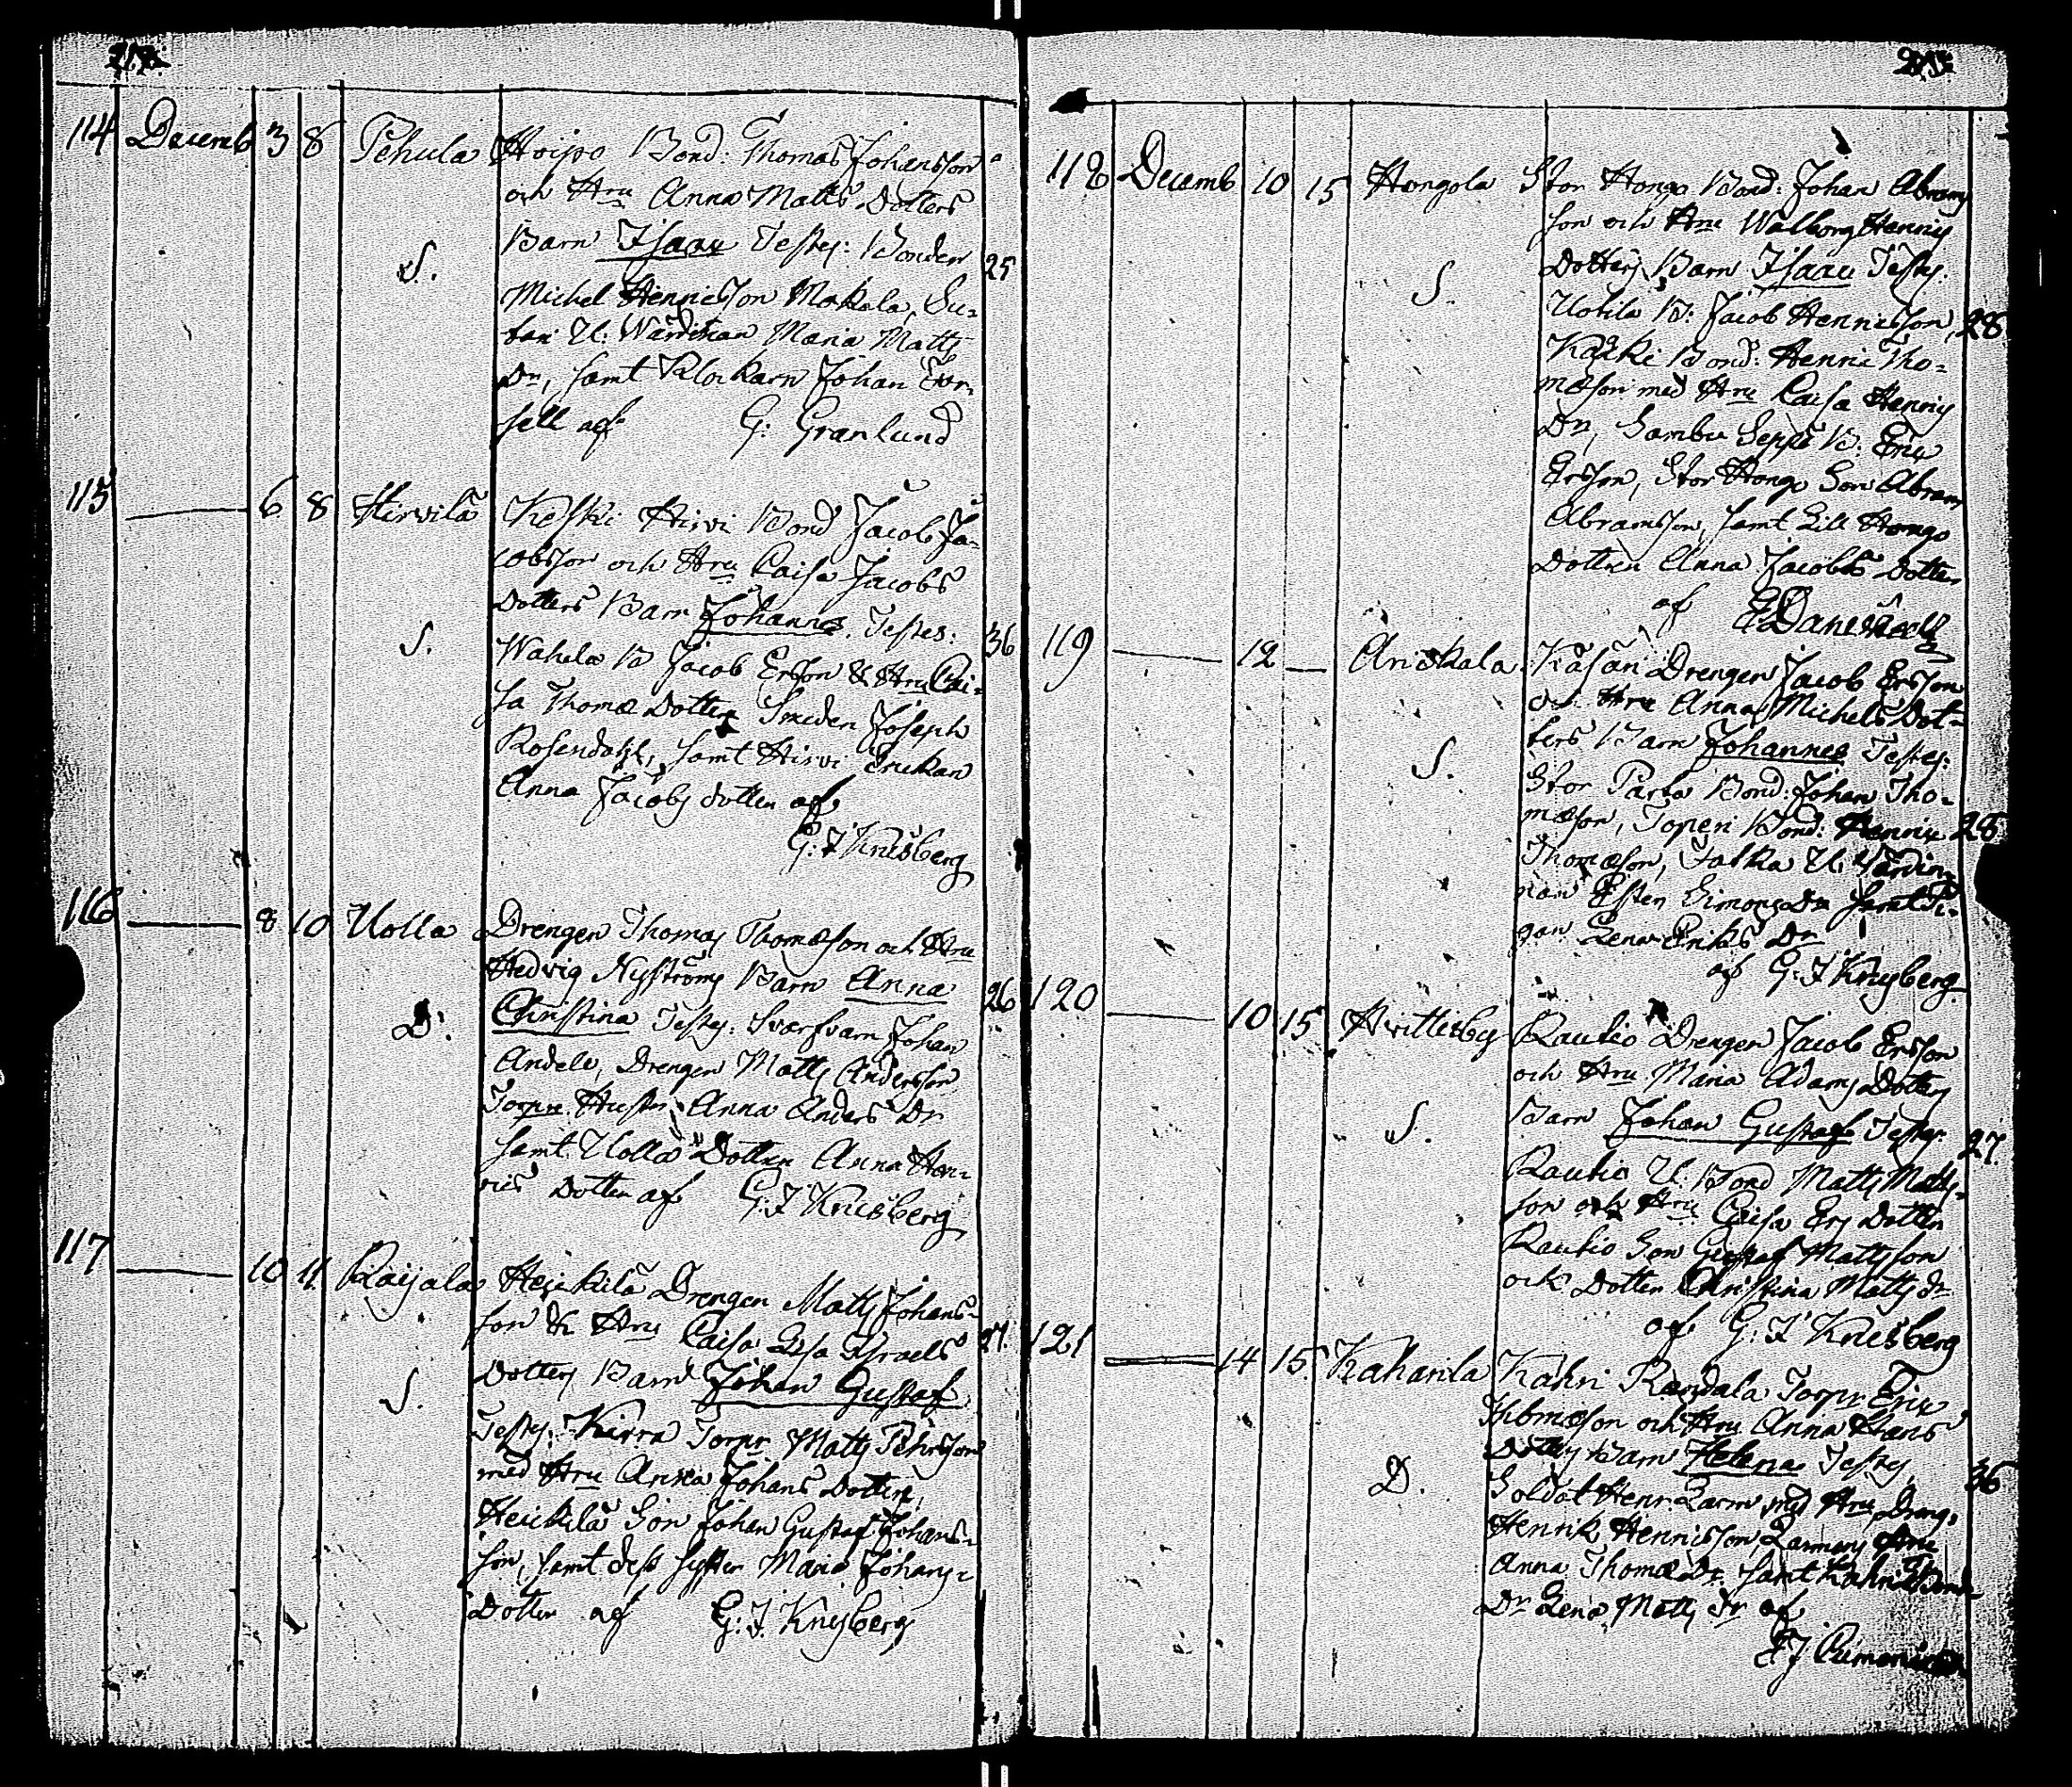 114 Decemb 3 8 Pehula Hoipo Bond: Thomas Johansson
och Hru Anna Matts Dotters
Barn Isaac Testes: Bonden
S. 25
Michel Henricsson Mokala, Su-
tari U: Wärdinan Maria Matts
Dr, samt Klockarn Johan For-
sell af G: Granlund
115 6 8 Hirvilä Keski Hirvi Bond Jacob Ja-
cobsson och Hru Caisa Jacobs
Dotters Barn Johannes. Testes:
S. 36
Wahela B Jacob Ersson & Hru Cai-
sa Thomæ Dotter Smeden Joseph
Rosendahl, samt Hirvi Enckan
Anna Jacobs dotter af
G: F Krusberg
116 8 10 Uolla Drengen Thomas Thomæson och Hru
Hedvig Nyströms Barn Anna
D: 26
Christina Testes: Svarfvarn Johan
Andele, Drengen Matts Andersson
Torpu Hustr: Anna Anders Dr
samt Uolla Dottren Anna Hen-
rics Dotter af G: F Krusberg
117 10 11 Raijala Heickilä Drengen Matts Johans-
son & Hru Caisa Lisa Israels 27.
Dotters Barn Johan Gustaf
S.
Testes: Kirra Torpr Matts Pehrsson
med Hru Anna Johans Dotter,
Heickilä Son Johan Gustaf Johans-
son, samt dess syster Maria Johans-
Dotter af G: F. Krusberg
118 Decemb 10 15 Hongola Stor Hongo Bond: Johan Abrams
son och Hru Walborg Henrics
Dotters Barn Isaac Testes:
S.
Uotila B: Jacob Henricsson, 28
Kaski Bond: Henric Tho-
mæson med Hru Caisa Henrics
Dr, Sambu Seppä B: Eric
Ersson, Stor Hongo Son Abram
Abramsson, samt Lill Hongo
Dottren Anna Jacobs Dotter
af
119 12 — Ariskala Käsäri Drengen Jacob Ersson
och Hru Anna Michels Dot-
ters Barn Johannes Testes:
S.
Stor Parta Bond: Johan Tho-
mæson, Toperi Bond: Henric 28
Thomæson, Jatka U: Värdin-
nan Ester Simons Dr samt Pi-
gan Lena Eriks Dr
af G: F Krusberg
120 10 15 Hvittisby Rautio Drengen Jacob Ersson
och Hru Maria Adams Dotters
Barn Johan Gustaf Testes:
S. 27.
Rautio U: Bond Matts Matts-
son och Hru Caisa Ers Dotter
Rautio Son Gustaf Mattsson
och Dotter Christina Matts dr
af G: F Krusberg
121 14 15. Kaharila Kahri Randala Torpr Eric
Thomæson och Hru Anna Hans
Dotters Barn Helena Testes
D. 36
Soldat Henr Larm med Hru, Dreng.
Henrik Henricsson Larmens Hru
Anna Thomæ Dr samt Kahri
Dr Lena Matts dr af